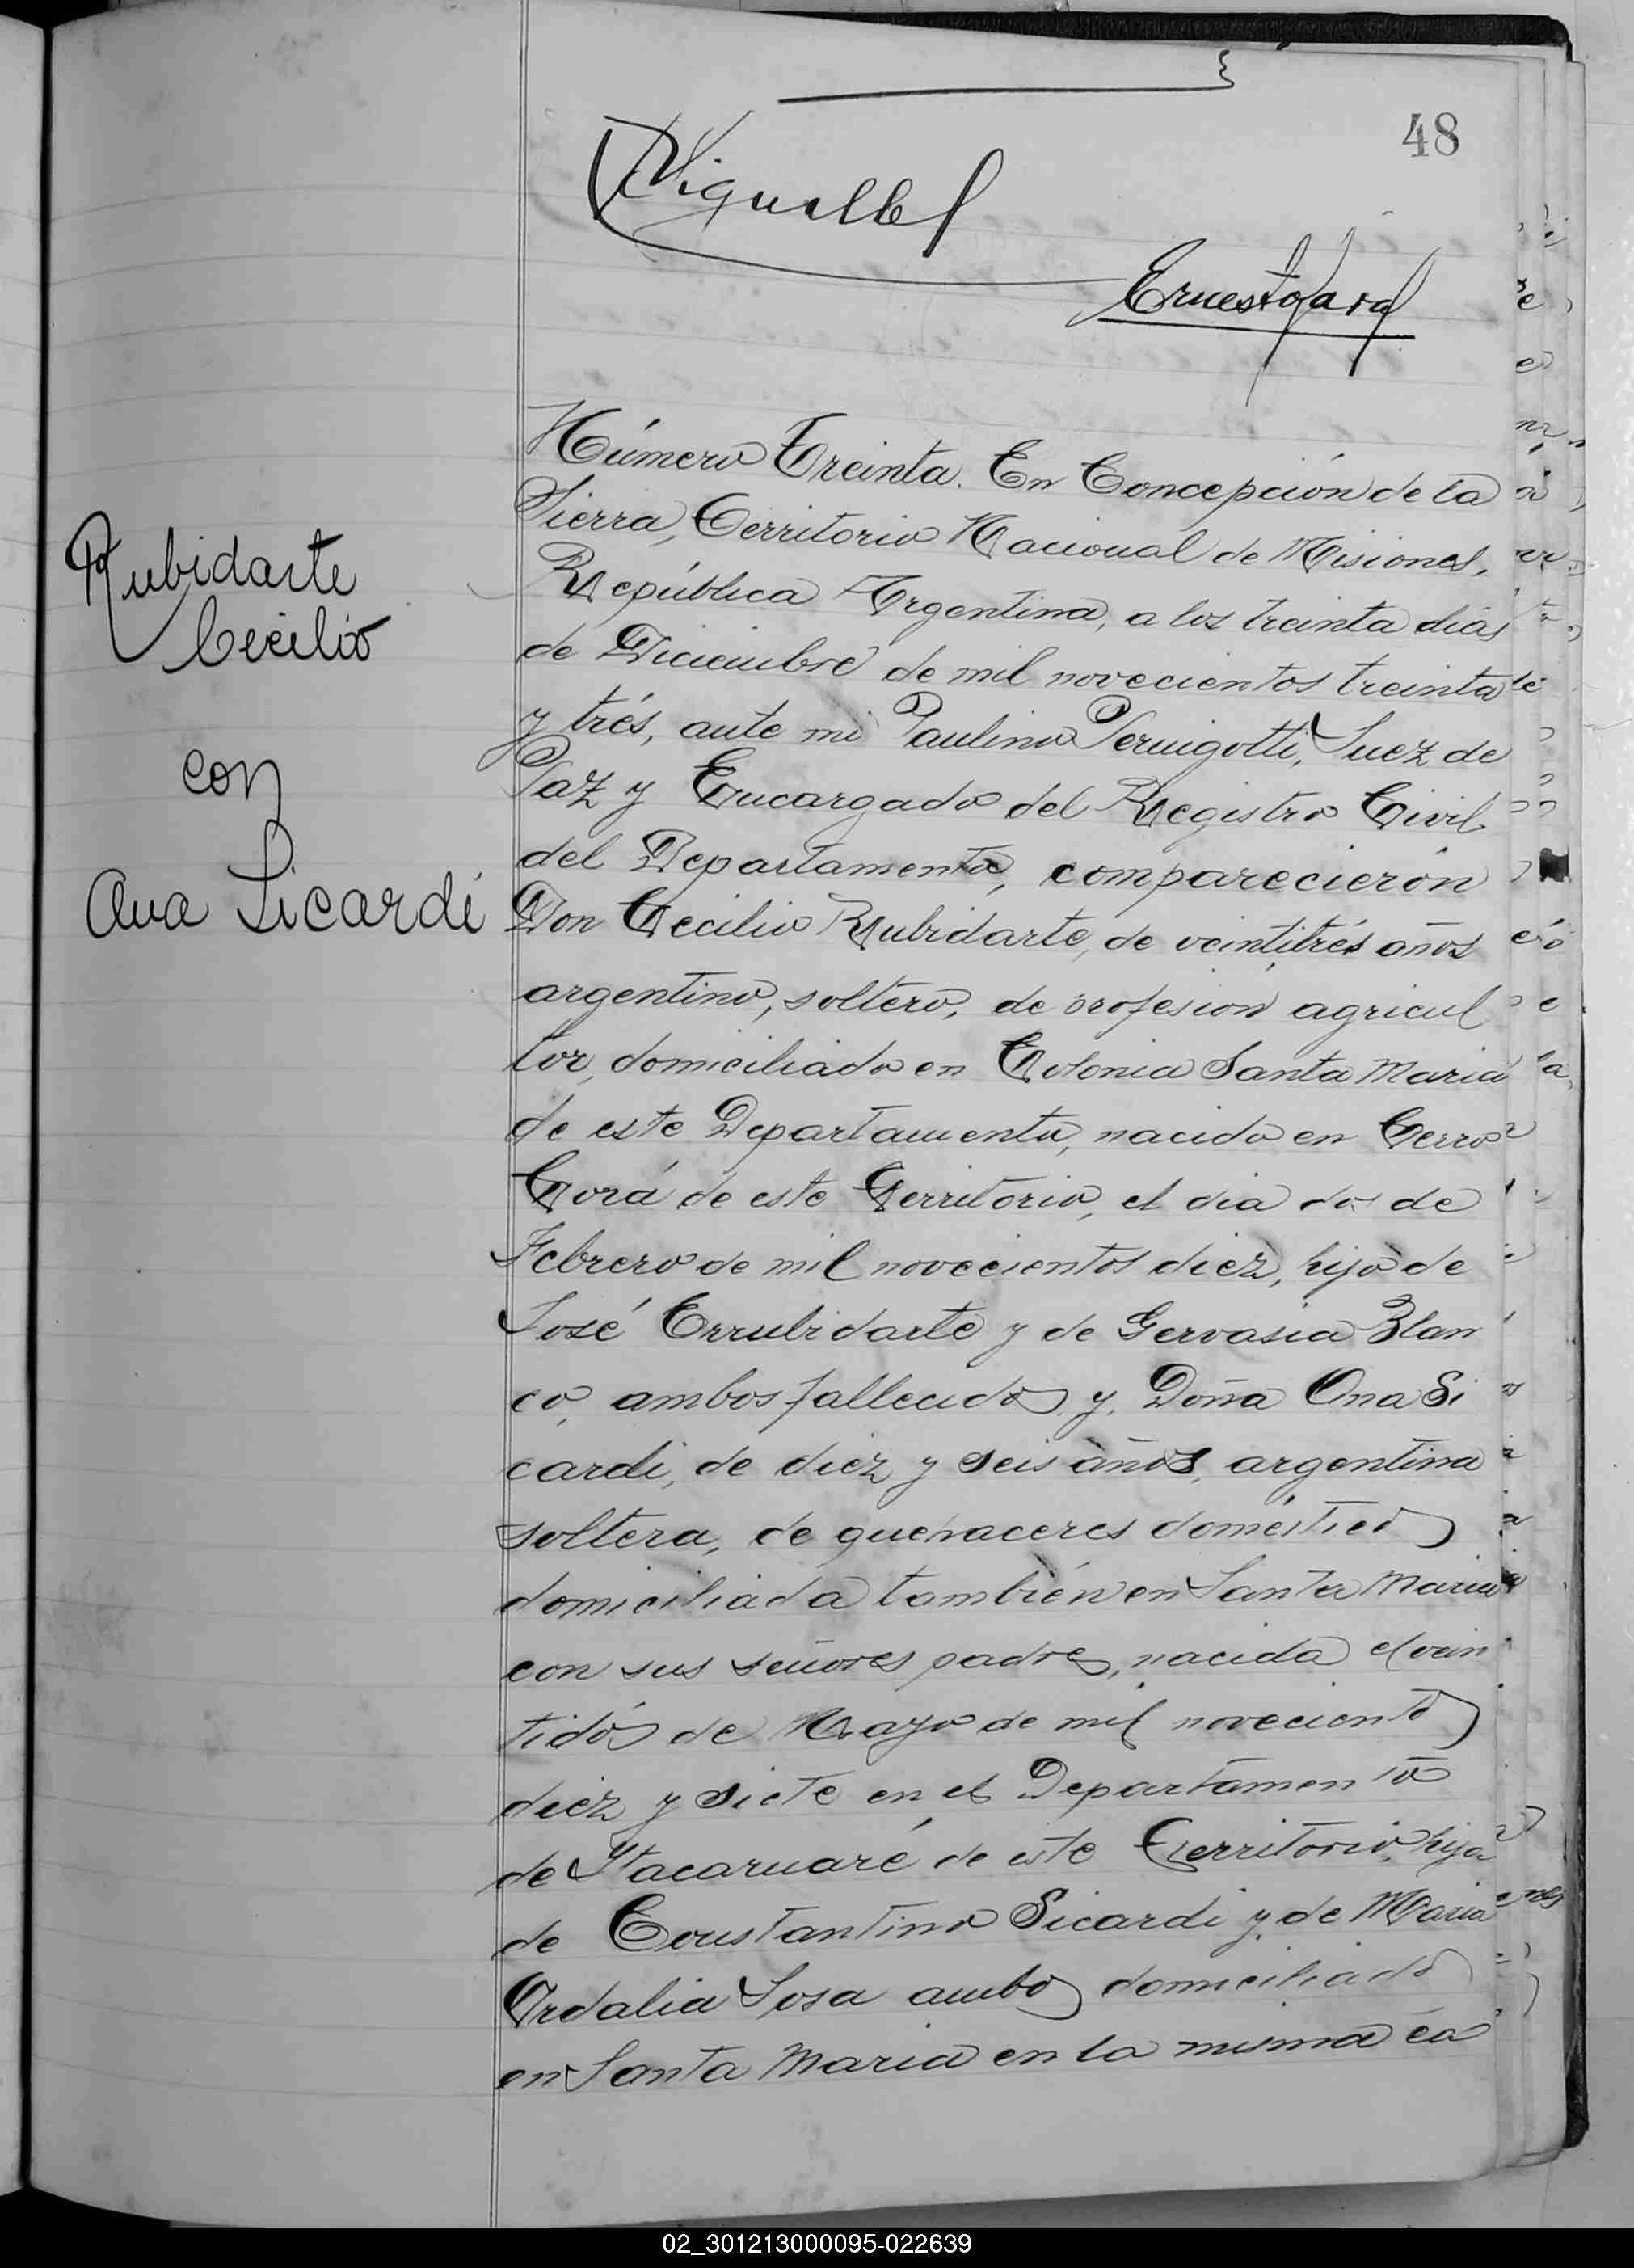 48
Ernesto Jara
Número Treinta. En Concepción de la
Sierra, Territorio Nacional de Misiones,
República Argentina, a los treinta dias
de Diciembre de mil novecientos treinta
y trés, ante mi Paulino Pernigotti, Juez de
Paz y Encargado del Registro Civil
del Departamento, comparecierón
Don Cecilio Rubidarte, de veintitrés años
argentino, soltero, de profesión agricul
tor, domiciliado en Colonia Santa Maria
de este Departamento, nacido en Cerro
Corá de este Territorio, el dia dos de
Febrero de mil novecientos diez, hijo de
José Errubidarte y de Gervasia Blan
co, ambos fallecidos y Doña Ana Si
cardi, de diez y seis años, argentina
soltera, de quehaceres domésticos
domiciliada también en Santa Maria
con sus señores padres, nacida el vein
tidós de Mayo de mil novecientos
diez y siete en el Departamento
de Itacaruaré de este Territorio, hija
de Constantino Sicardi y de Maria
Ordalia Sosa ambos domiciliados
en Santa Maria en la misma ca
Rubidarte
Cecilio
con
Ana Sicardi
02_301213000095-022639